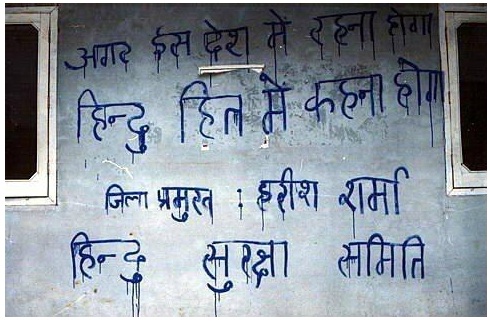 अगर इस देश में रहना होगा
हिन्दु हित में कहना होगा
जिला प्रमुख : हरीश शर्मा
हिन्दु सुरक्षा समिति